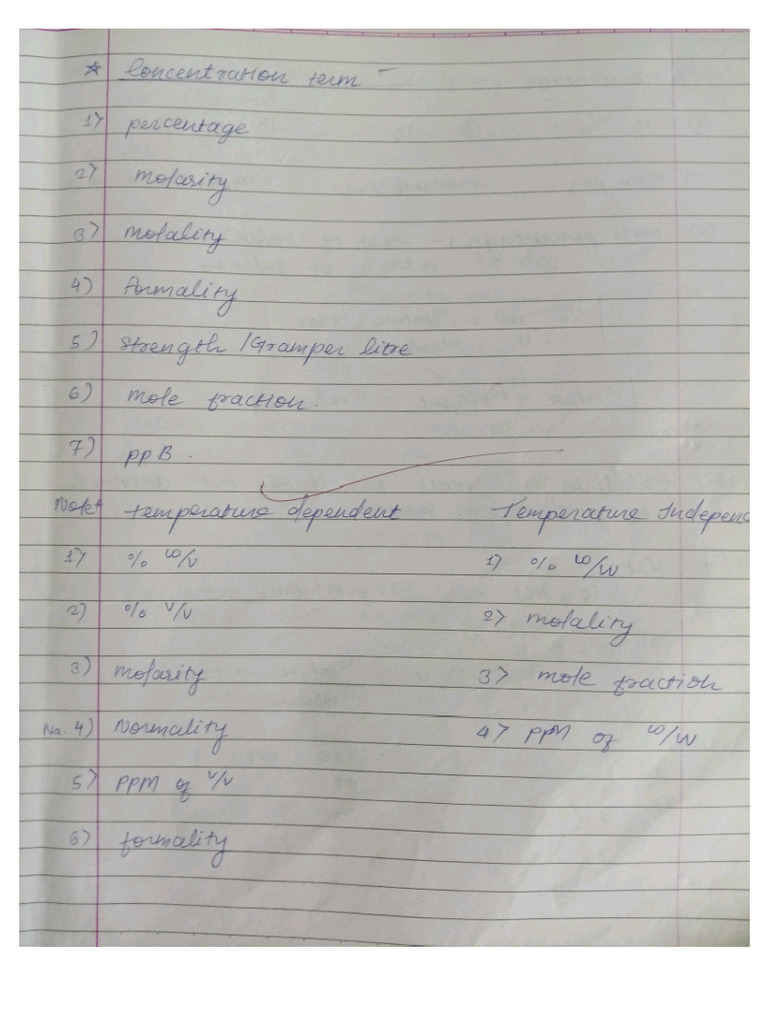 * Concentration term -
1) percentage
2) molarity
3) molality
4) formality
5) strength / Gram per litre
6) mole fraction.
7) ppB.
Note+ temperature dependent Temperature Independ
1) % W/V 1) % W/W
2) % V/V 2) molality
3) molarity 3) mole fraction
Na. 4) Normality 4) PPM of W/W
5) PPM of V/V
6) formality